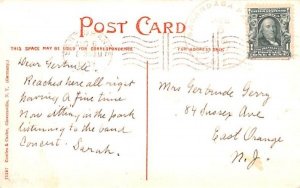 POST CARD
THIS SPACE MAY BE USED FOR CORRESPONDENCE
FOR ADDRESS ONLY.
Dear Gertrude.
Reached here all right
having a fine time
Now sitting in the park
listening to the band
Concert. Sarah.
Mrs Gertrude Gerry
84 Sussex Ave
East Orange
N. J.
1